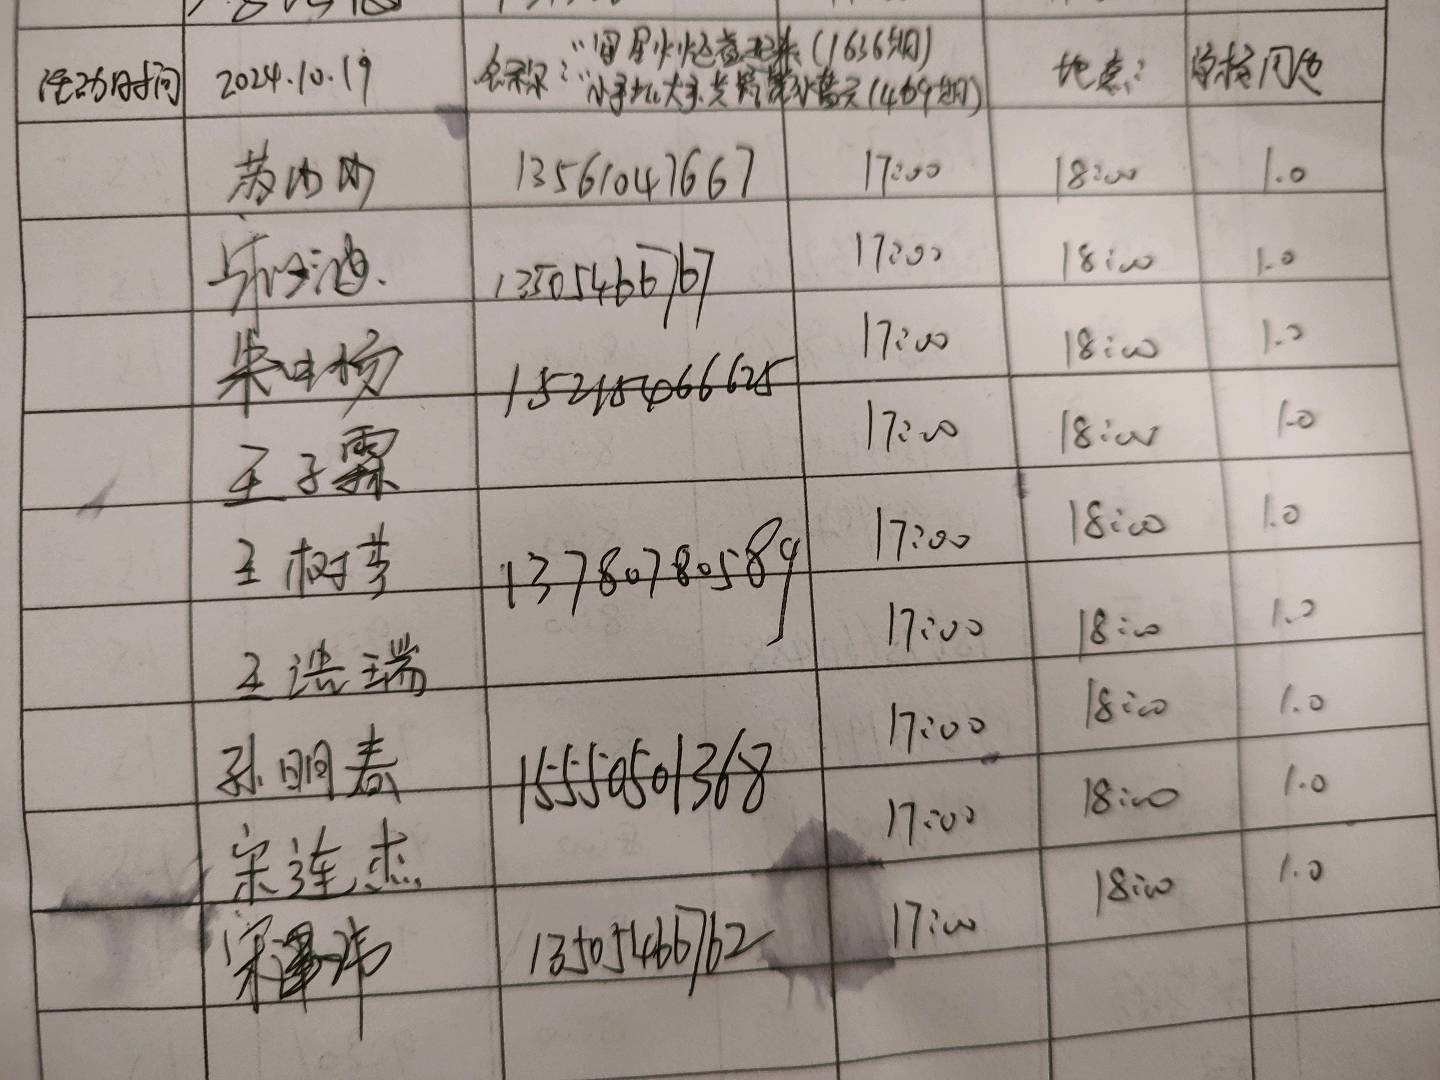 活动时间 2024.10.19 名称：“星星火炬燃起来(1636期) 地点： 学校周边
“小手拉大手 (469期)
苏 13561047667 17:00 18:00 1.0
13505466767 17:00 18:00 1.0
朱日杨 15215466625 17:00 18:00 1.0
王子霖 17:00 18:00 1.0
王树芳 13780780589 17:00 18:00 1.0
王浩瑞 17:00 18:00 1.0
孙明春 15550501368 17:00 18:00 1.0
宋连杰 17:00 18:00 1.0
宋泽沛 13505466762 17:00 18:00 1.0